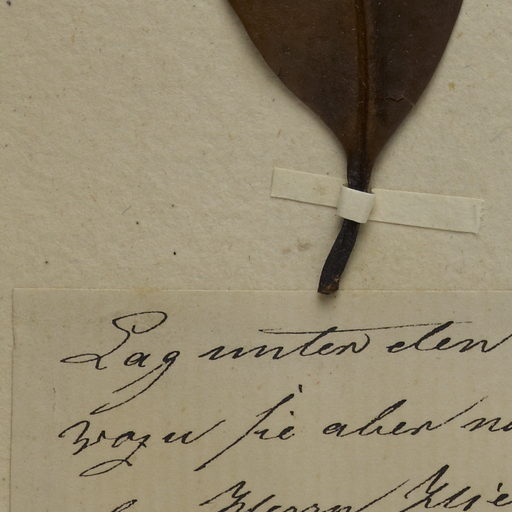 Lag unter den
wozu sie aber
Herrn